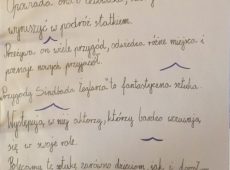 Opowiada ona o
wyruszyć w podróż statkiem.
Przeżywa on wiele przygód, odwiedza różne miejsca i
poznaje nowych przyjaciół.
"Przygody Sindbada żeglarza" to fantastyczna sztuka.
Występują w niej aktorzy, którzy bardzo wczuwają
się w swoje role.
Polecamy tę sztukę zarówno dzieciom jak i